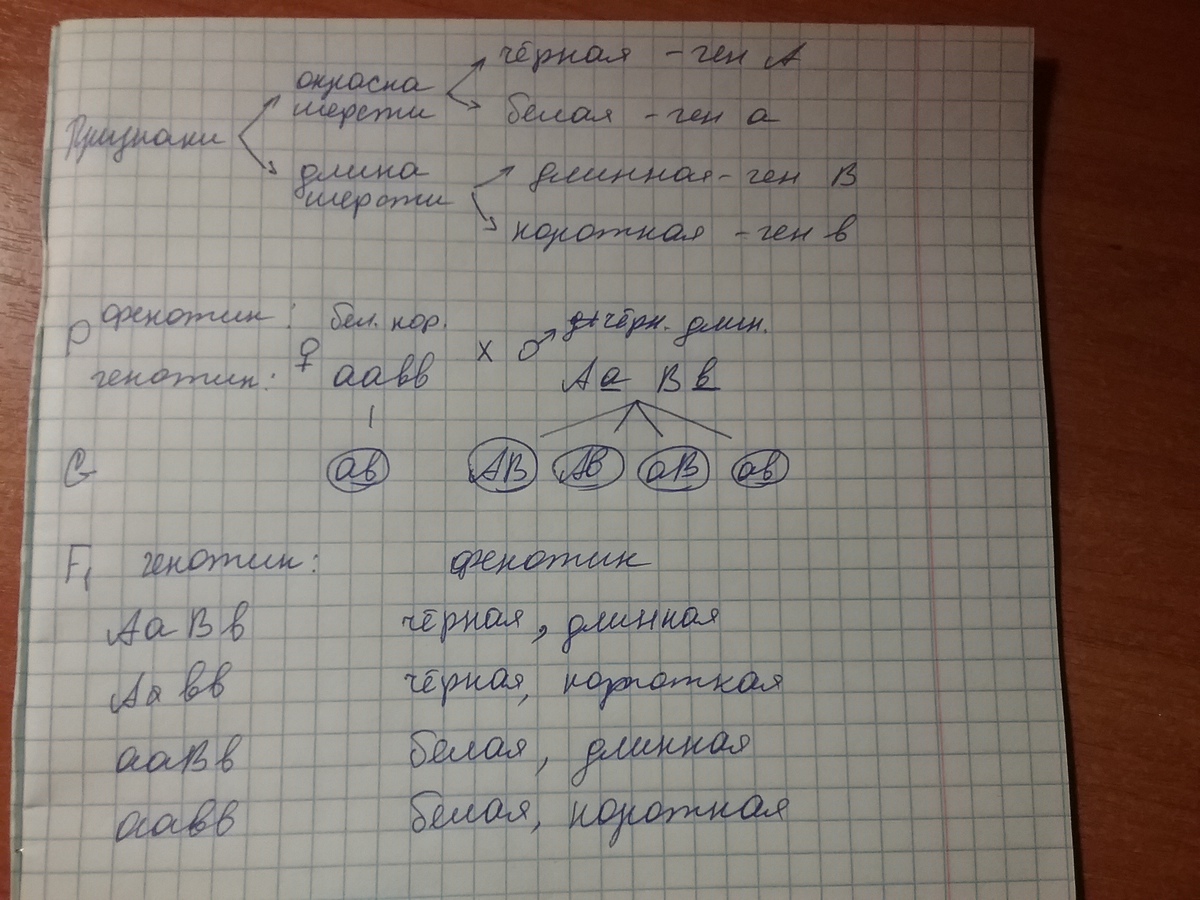 чёрная - ген А
окраска
шерсти
белая - ген а
Признаки
длина
шерсти
длинная - ген В
короткая - ген в
Р фенотип: бел. кор. чёрн. длин.
генотип: ♀ аавв х ♂ Аа Вв
G ав АВ Ав аВ ав
F₁ генотип: фенотип
АаВв чёрная, длинная
Аавв чёрная, короткая
ааВв белая, длинная
аавв белая, короткая